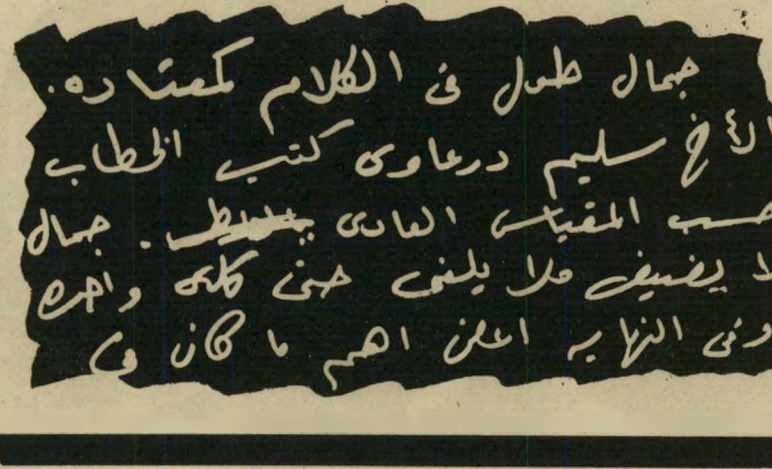 جمال طول فى الكلام كمعتاده.
الأخ سليم درعاوى كتب الخطاب
حسب المقياس العادى. جمال
لا يضيف ولا يلغى حتى كلمه واحده
وفى النهايه اعلن اهم ما كان فى